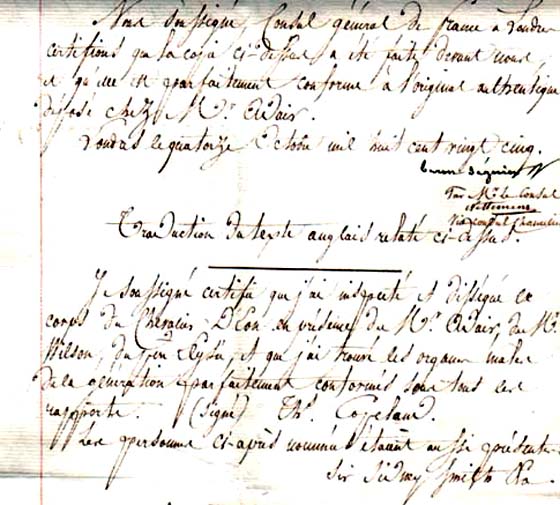 Nous soussigné, Consul général de France à Londres
certifions que la copie ci-dessus a été faite devant nous,
et qu'elle est parfaitement conforme à l'original authentique
déposé chez Mr. Adair.
Londres le quatorze Octobre mil huit cent vingt cinq.
baron Séguier
Par Mr. le Consul
Vice consul Chancelier
Traduction du texte anglais relaté ci-dessus.
Je soussigné certifie que j'ai inspecté et disséqué le
corps du Chevalier D'Eon en présence de Mr. Adair, de Mr.
Wilson, du père Elysée, et que j'ai trouvé les organes males
de la génération parfaitement conformés sous tous les
rapports. (Signé) Th. Copeland.
Les personnes ci-après nommées étaient aussi présentes
Sir Sidney Smith